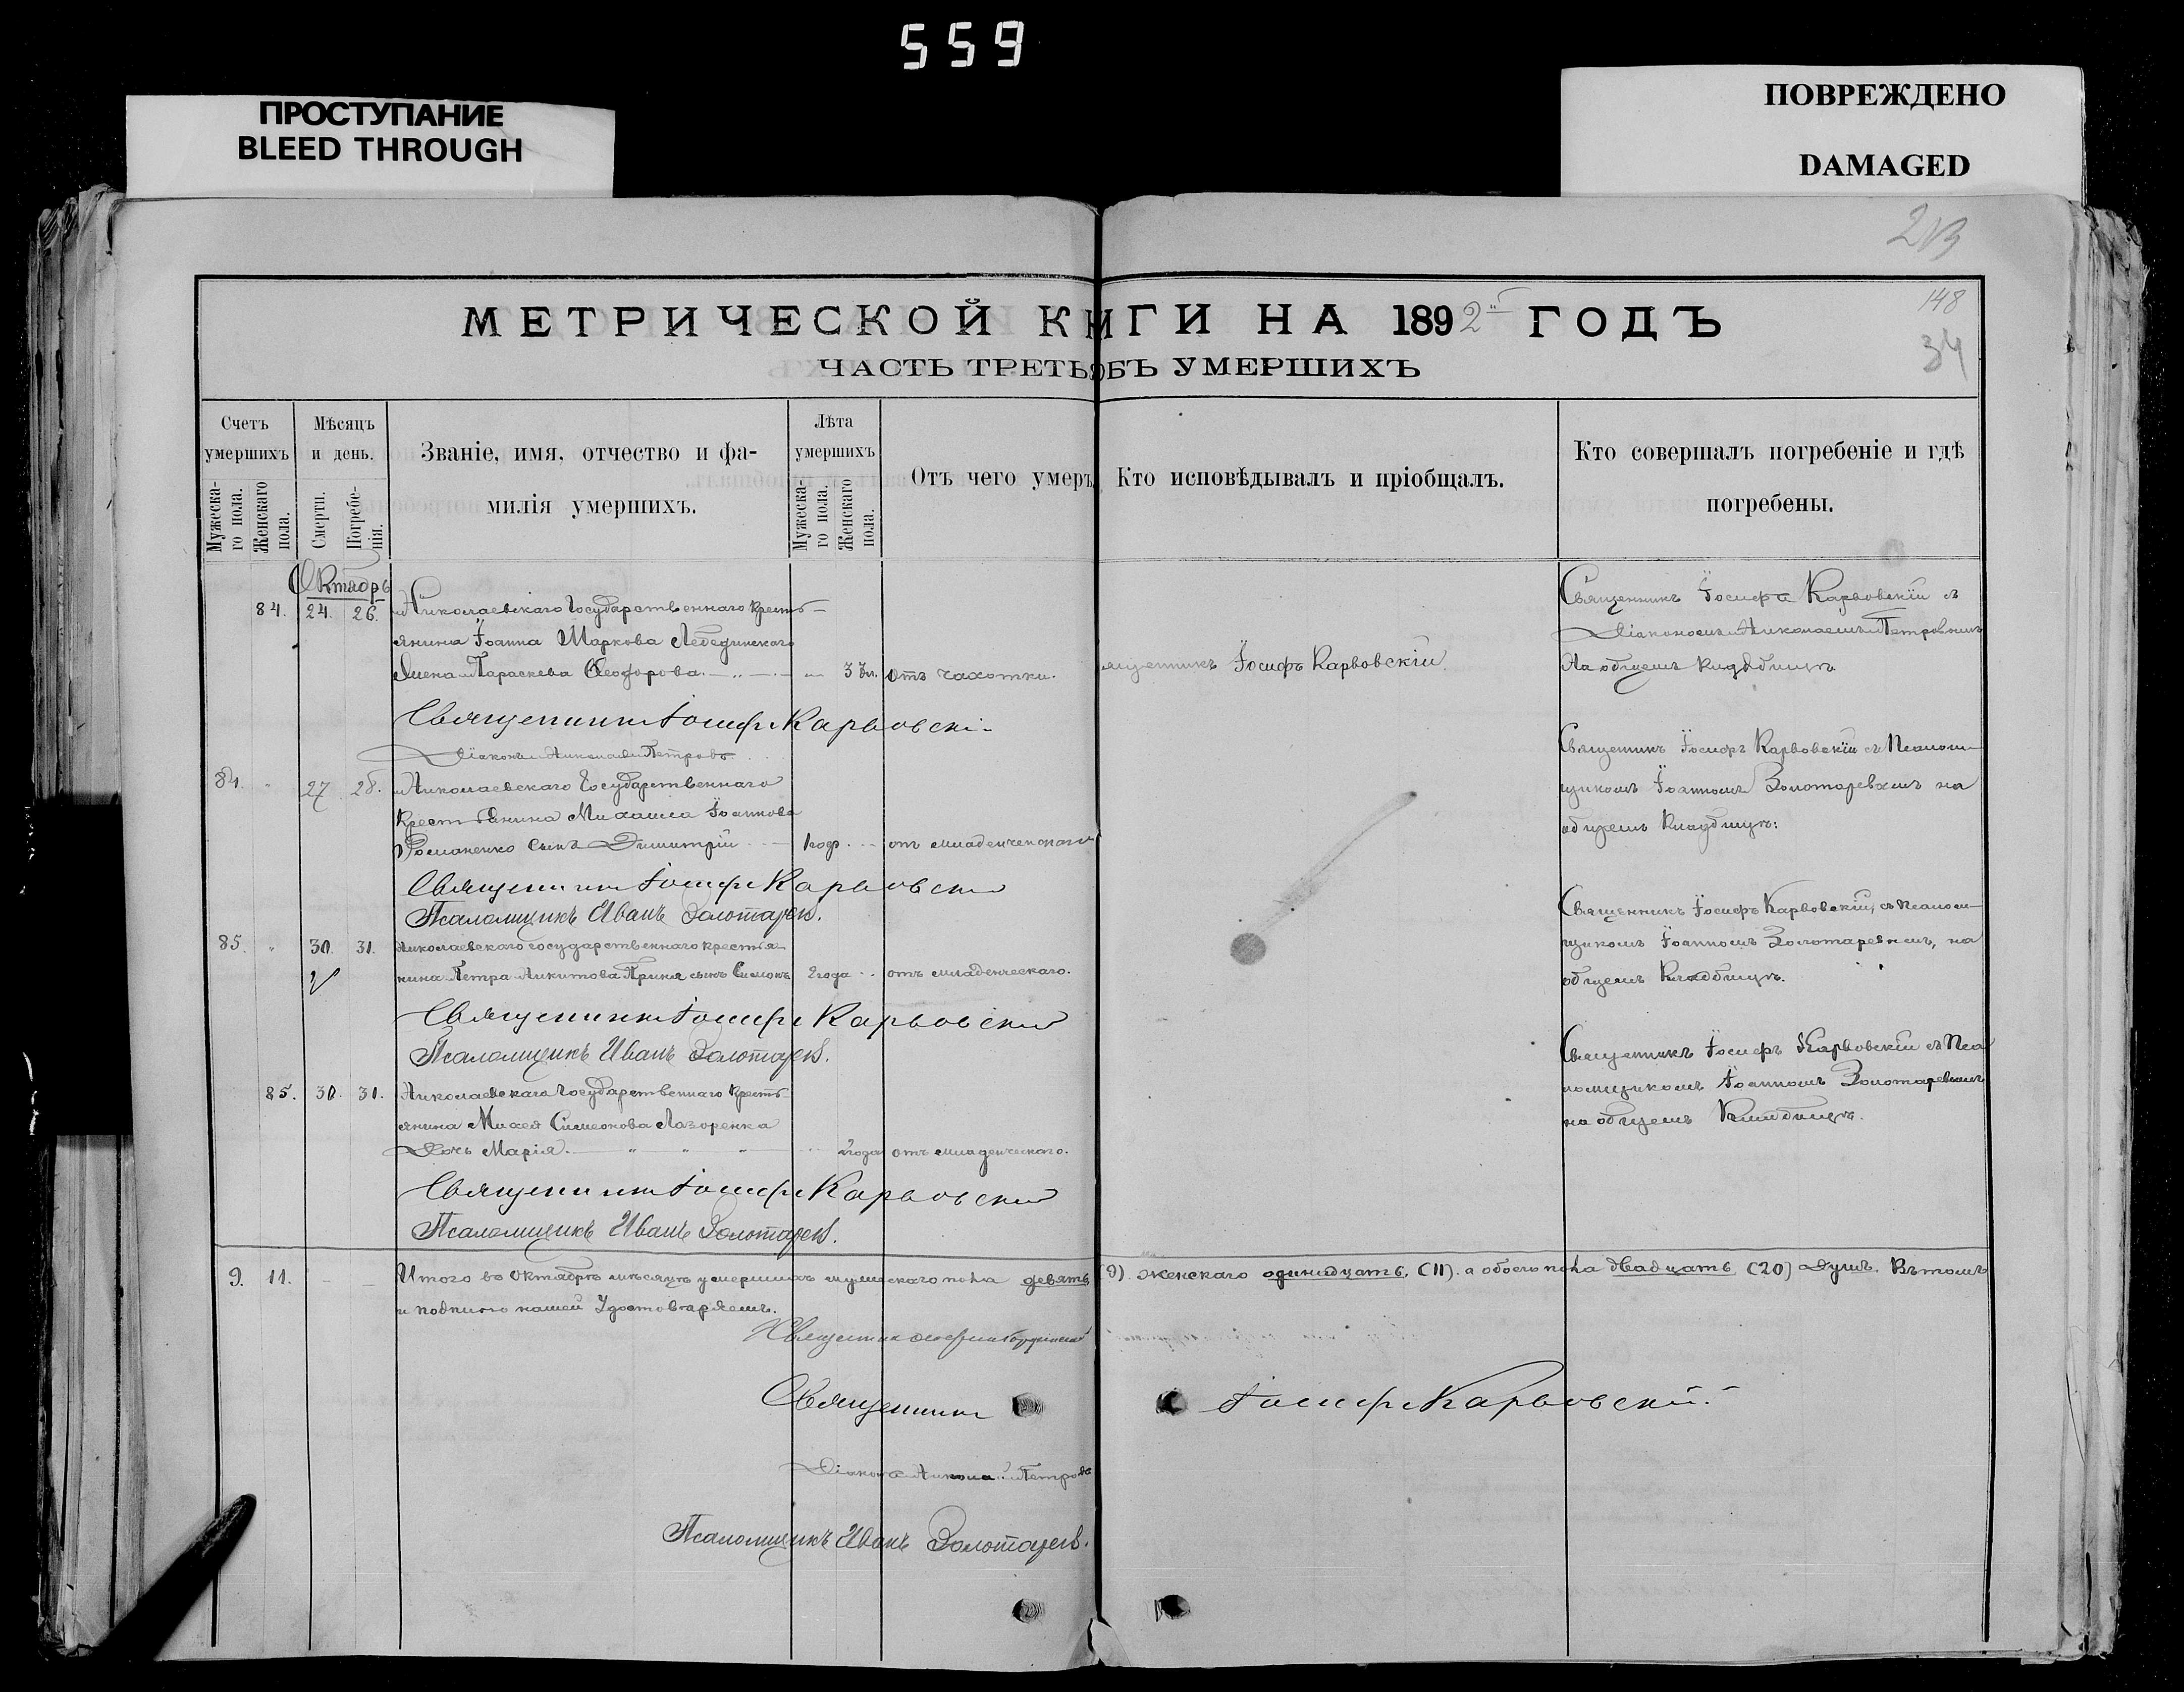 559
ПРОСТУПАНИЕ
BLEED THROUGH
ПОВРЕЖДЕНО
DAMAGED
213
148
34
МЕТРИЧЕСКОЙ КНИГИ НА 1892й ГОДЪ
ЧАСТЬ ТРЕТЬЯ ОБЪ УМЕРШИХЪ
Счетъ умершихъ
Мужеска-
го пола.
Женскаго
пола.
Мѣсяцъ и день.
Смерти.
Погребе-
нія.
Званіе, имя, отчество и фа-
милія умершихъ.
Лѣта умершихъ
Мужеска-
го пола.
Женскаго
пола.
Отъ чего умеръ
Кто исповѣдывалъ и пріобщалъ.
Кто совершалъ погребеніе и гдѣ
погребены.
Октябрь
84. 24. 26. Николаевскаго Государственнаго Кресть-
янина Іоанна Маркова Лебединскаго
Жена Параскева Ѳеодорова. отъ чахотки.
Священникъ Іосифъ Карвовскій
Священникъ Іосифъ Карвовскій съ
Діакономъ Николаемъ Петровымъ
На общемъ кладбищѣ
Священникъ Іосифъ Карвовскій
Діаконъ Николай Петровъ
84. " 27 28. Николаевскаго Государственнаго
Крестьянина Михаила Іоаннова
Романенко Сынъ Димитрій 1 годъ отъ младенческаго
Священникъ Іосифъ Карвовскій съ Псалом-
щикомъ Іоанномъ Золотаревымъ на
общемъ Кладбищѣ:
Священникъ Іосифъ Карвовскій
Псаломщикъ Иванъ Золотаревъ.
85. " 30. 31. Николаевскаго государственнаго крестья-
нина Петра Никитова сынъ Симонъ 2 года отъ младенческаго.
Священникъ Іосифъ Карвовскій, съ Псалом-
щикомъ Іоанномъ Золотаревымъ, на
общемъ Кладбищѣ.
Священникъ Іосифъ Карвовскій
Псаломщикъ Иванъ Золотаревъ.
85. 30. 31. Николаевскаго Государственнаго Кресть-
янина Михея Симеонова Лазоренка
Дочь Марія. " " " 2 года отъ младенческаго.
Священникъ Іосифъ Карвовскій съ Пса
ломщикомъ Іоанномъ Золотаревымъ
на общемъ Кладбищѣ.
Священникъ Іосифъ Карвовскій
Псаломщикъ Иванъ Золотаревъ.
9. 11. Итого въ Октябрѣ мѣсяцѣ умершихъ мужескаго пола девять (9). женскаго одинадцать. (11). а обоего пола двадцать (20) душъ. Въ томъ
и подписью нашей Удостовѣряемъ.
Священникъ
Священникъ Іосифъ Карвовскій.
Діаконъ Николай Петровъ
Псаломщикъ Иванъ Золотаревъ.